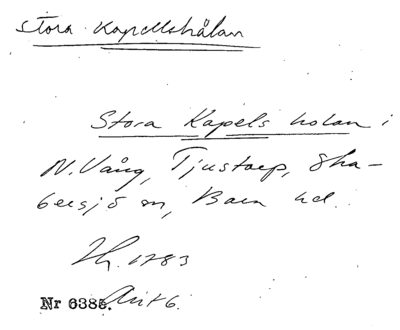 Stora Kapellshålan
Stora Kapels holan i
N. Vång, Tjustorp, Ska-
bersjö sn, Bara hd.
1783
Nr 6385. Akt 6.